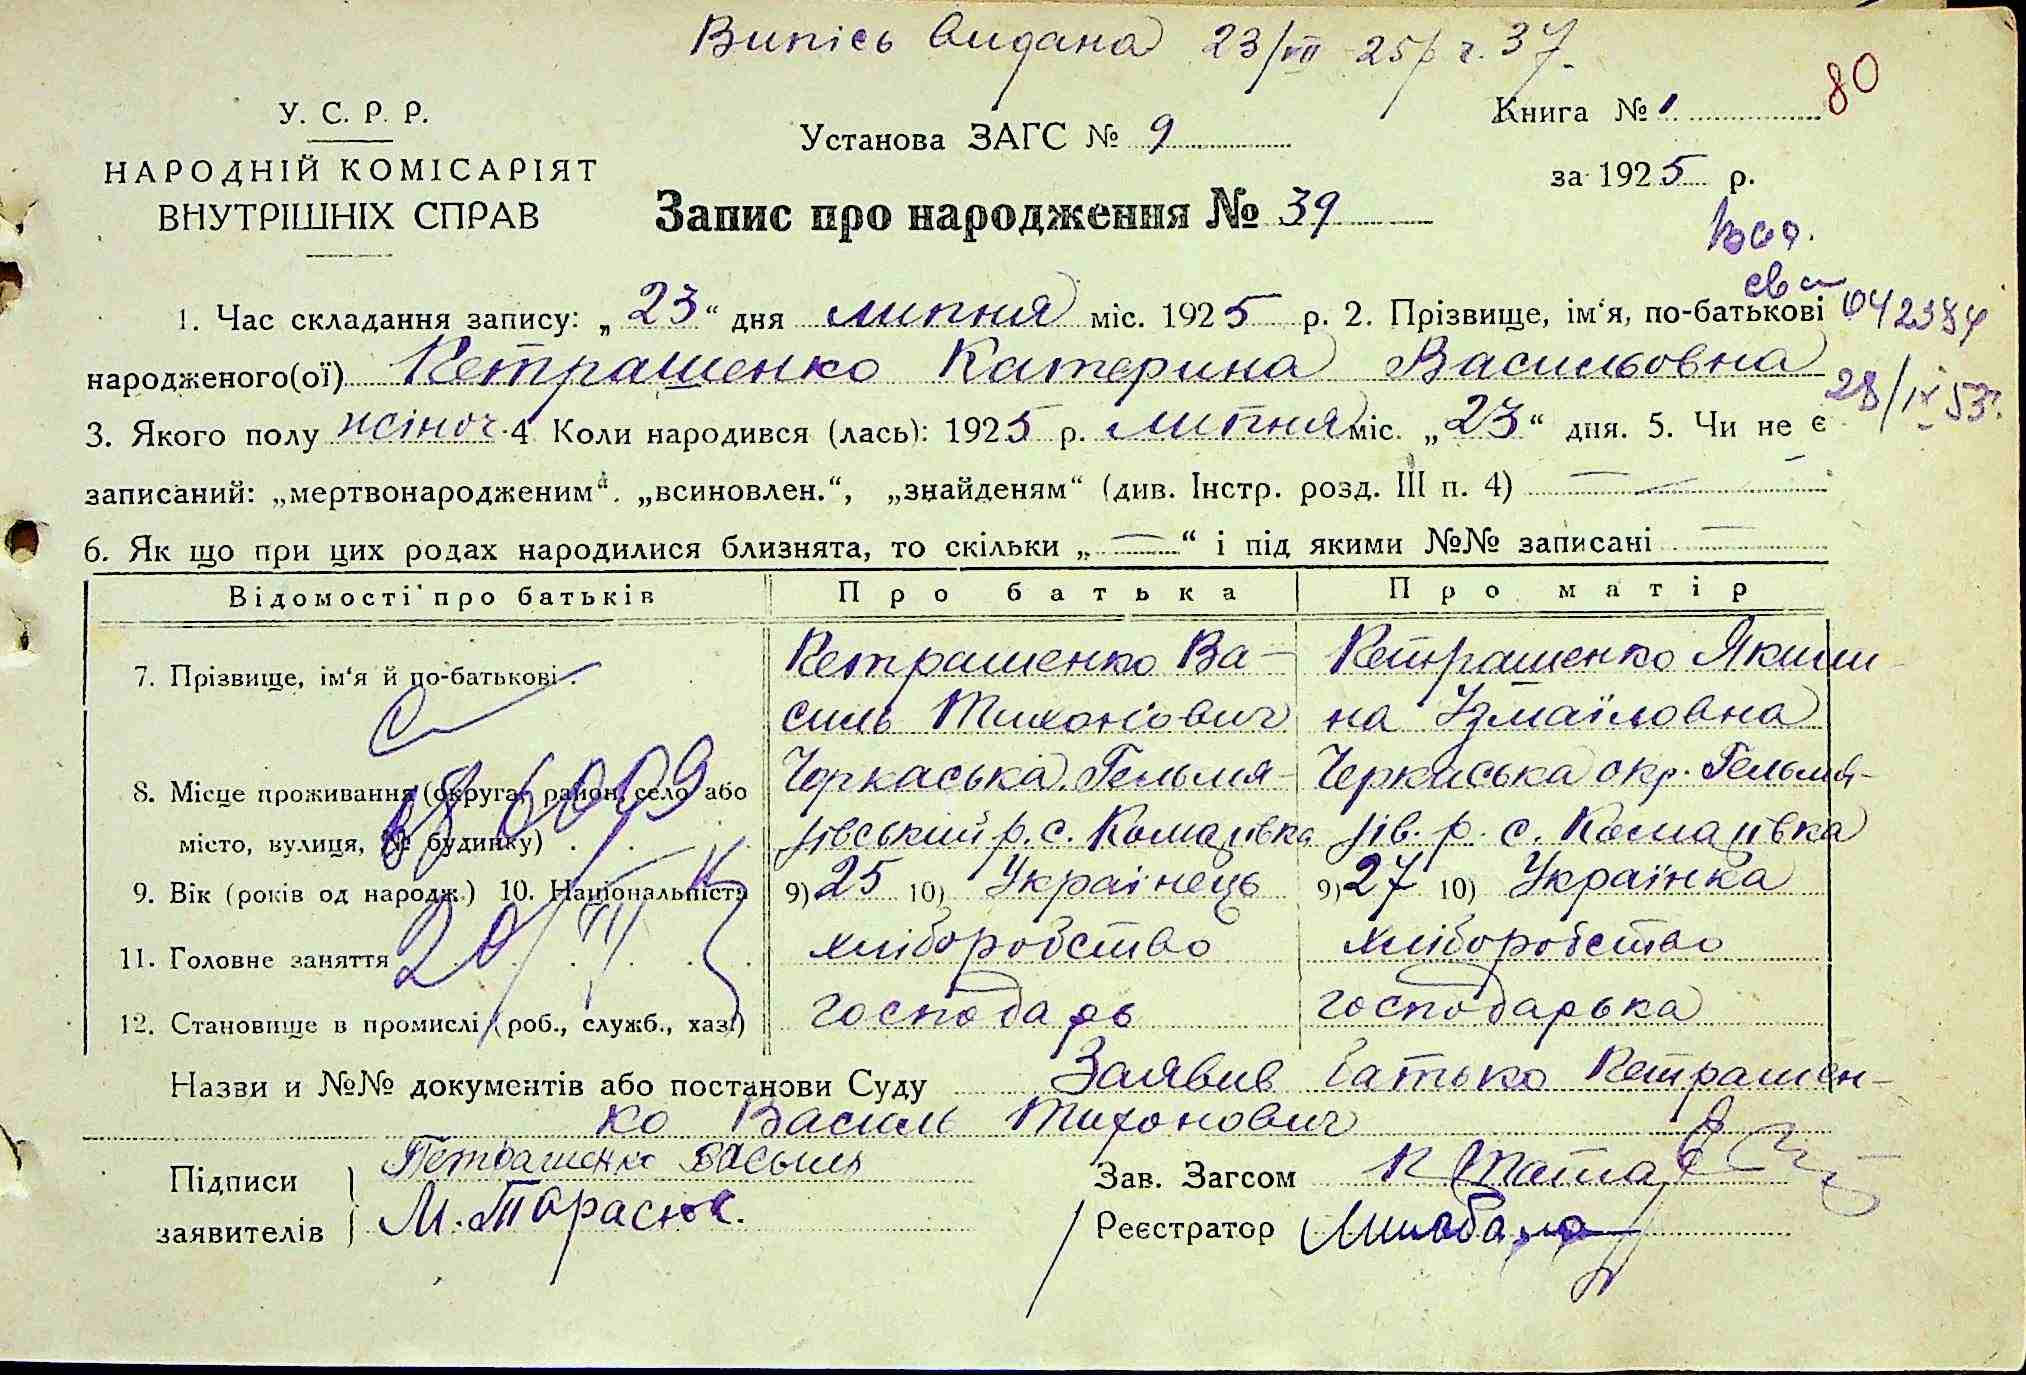 Випісь видана 23/VII 25 р ч. 37.
80
У. С. Р. Р.
НАРОДНІЙ КОМІСАРІЯТ
ВНУТРІШНІХ СПРАВ
Установа ЗАГС № 9
Книга № 1
за 1925 р.
Запис про народження № 39
1. Час складання запису: „23“ дня липня міс. 1925 р. 2. Прізвище, ім‘я, по-батькові
042384
народженого(ої) Петрашенко Катерина Васильовна
28/IX 53г.
3. Якого полу жіноч. 4 Коли народився (лась): 1925 р. липня міс. „23“ дня. 5. Чи не є
записаний: „мертвонародженим“, „всиновлен.“, „знайденям“ (див. Інстр. розд. III п. 4) —
6. Як що при цих родах народилися близнята, то скільки „—“ і під якими №№ записані —
Відомості про батьків Про батька Про матір
7. Прізвище, ім‘я й по-батькові . Петрашенко Ва- Петрашенко Якили-
силь Тихонович на Ізмаїловна
8. Місце проживання (округа, район, село або Черкаська. Гельмя- Черкаська окр. Гельмя-
місто, вулиця, № будинку) зівський р. с. Комарівка зів. р. с. Комарівка
9. Вік (років од народж.) 10. Національність 9) 25 10) Українець 9) 27 10) Українка
11. Головне заняття хліборобство хліборобство
12. Становище в промислі (роб., служб., хаз.) господарь господарька
Назви и №№ документів або постанови Суду Заявив батько Петрашен-
ко Василь Тихонович
Підписи Петрашенко Василь Зав. Загсом
заявителів М. Тарасюк. Реєстратор